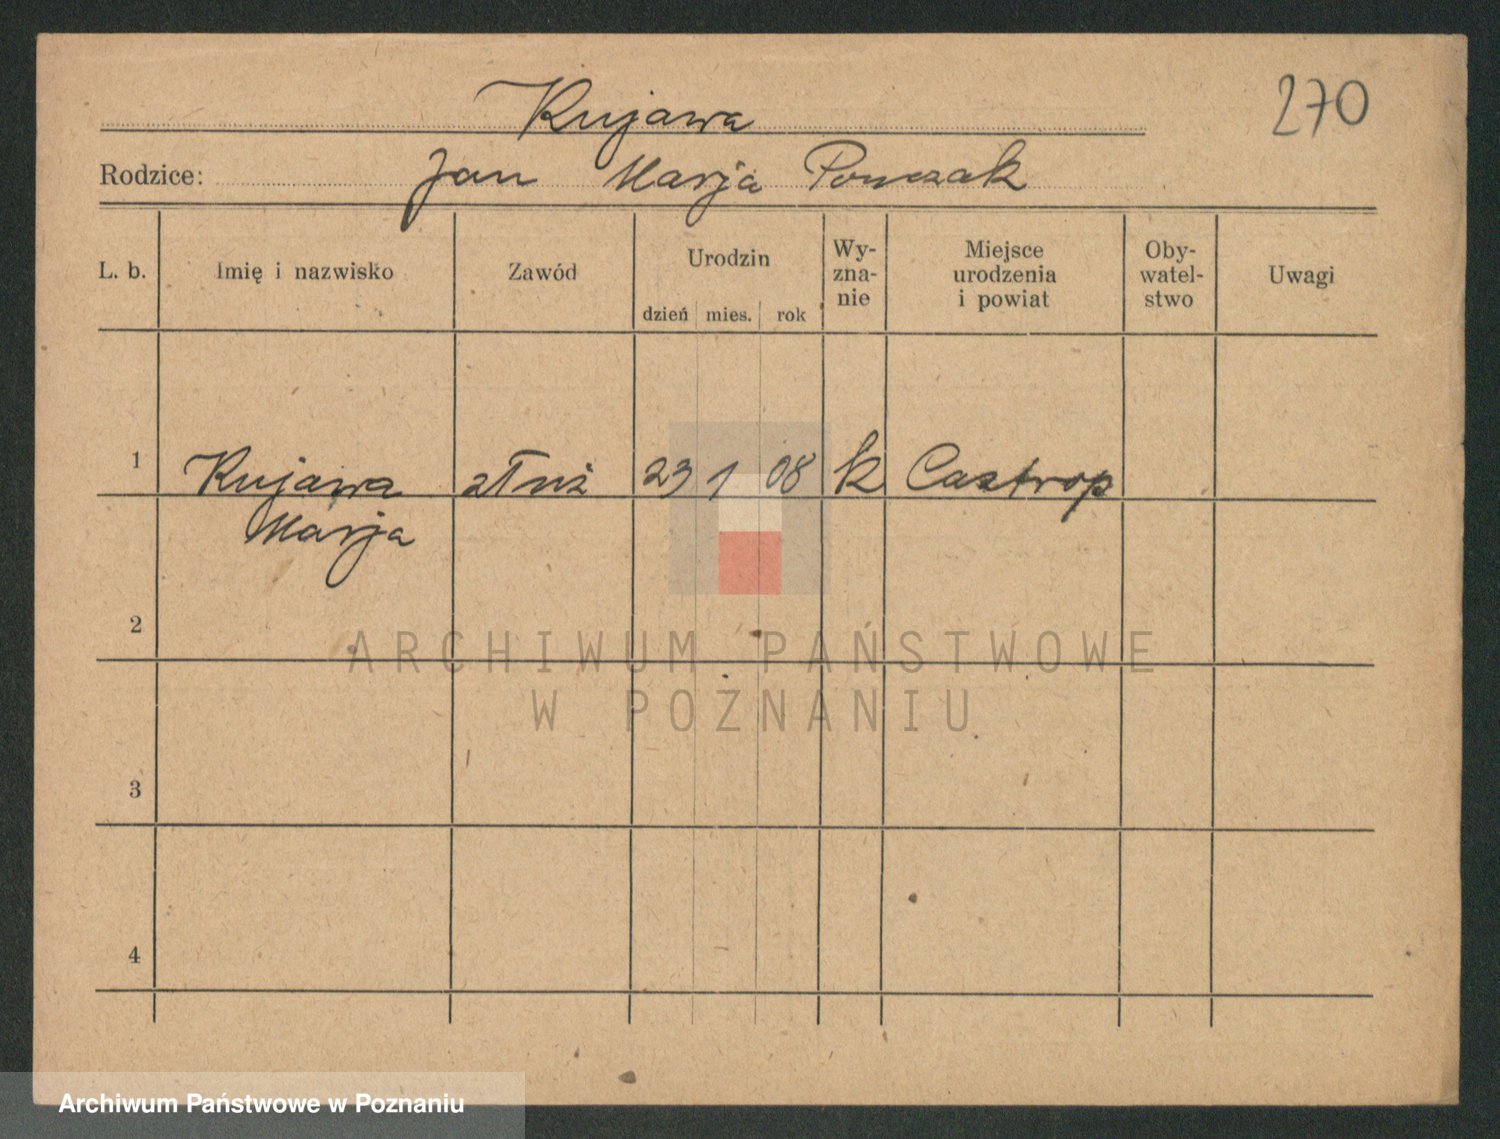 270
Kujawa
Rodzice: Jan Marja
L. b. Imię i nazwisko Zawód Urodzin dzień mies. rok Wy-zna-nie Miejsce urodzenia i powiat Oby-watel-stwo Uwagi
1 Kujawa służ 23 1 08 k Castrop
Marja
2
ARCHIWUM PAŃSTWOWE
W POZNANIU
3
4
Archiwum Państwowe w Poznaniu